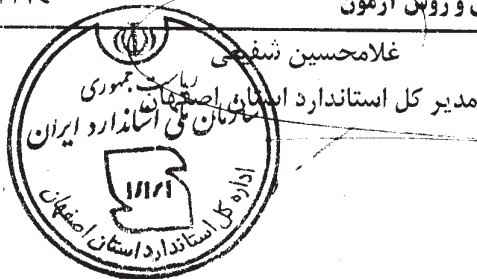 و روش آزمون
غلامحسین شفیعی
مدیر کل استاندارد استان اصفهان
ریاست جمهوری
سازمان ملی استاندارد ایران
۱/۱/۱
اداره کل استاندارد استان اصفهان